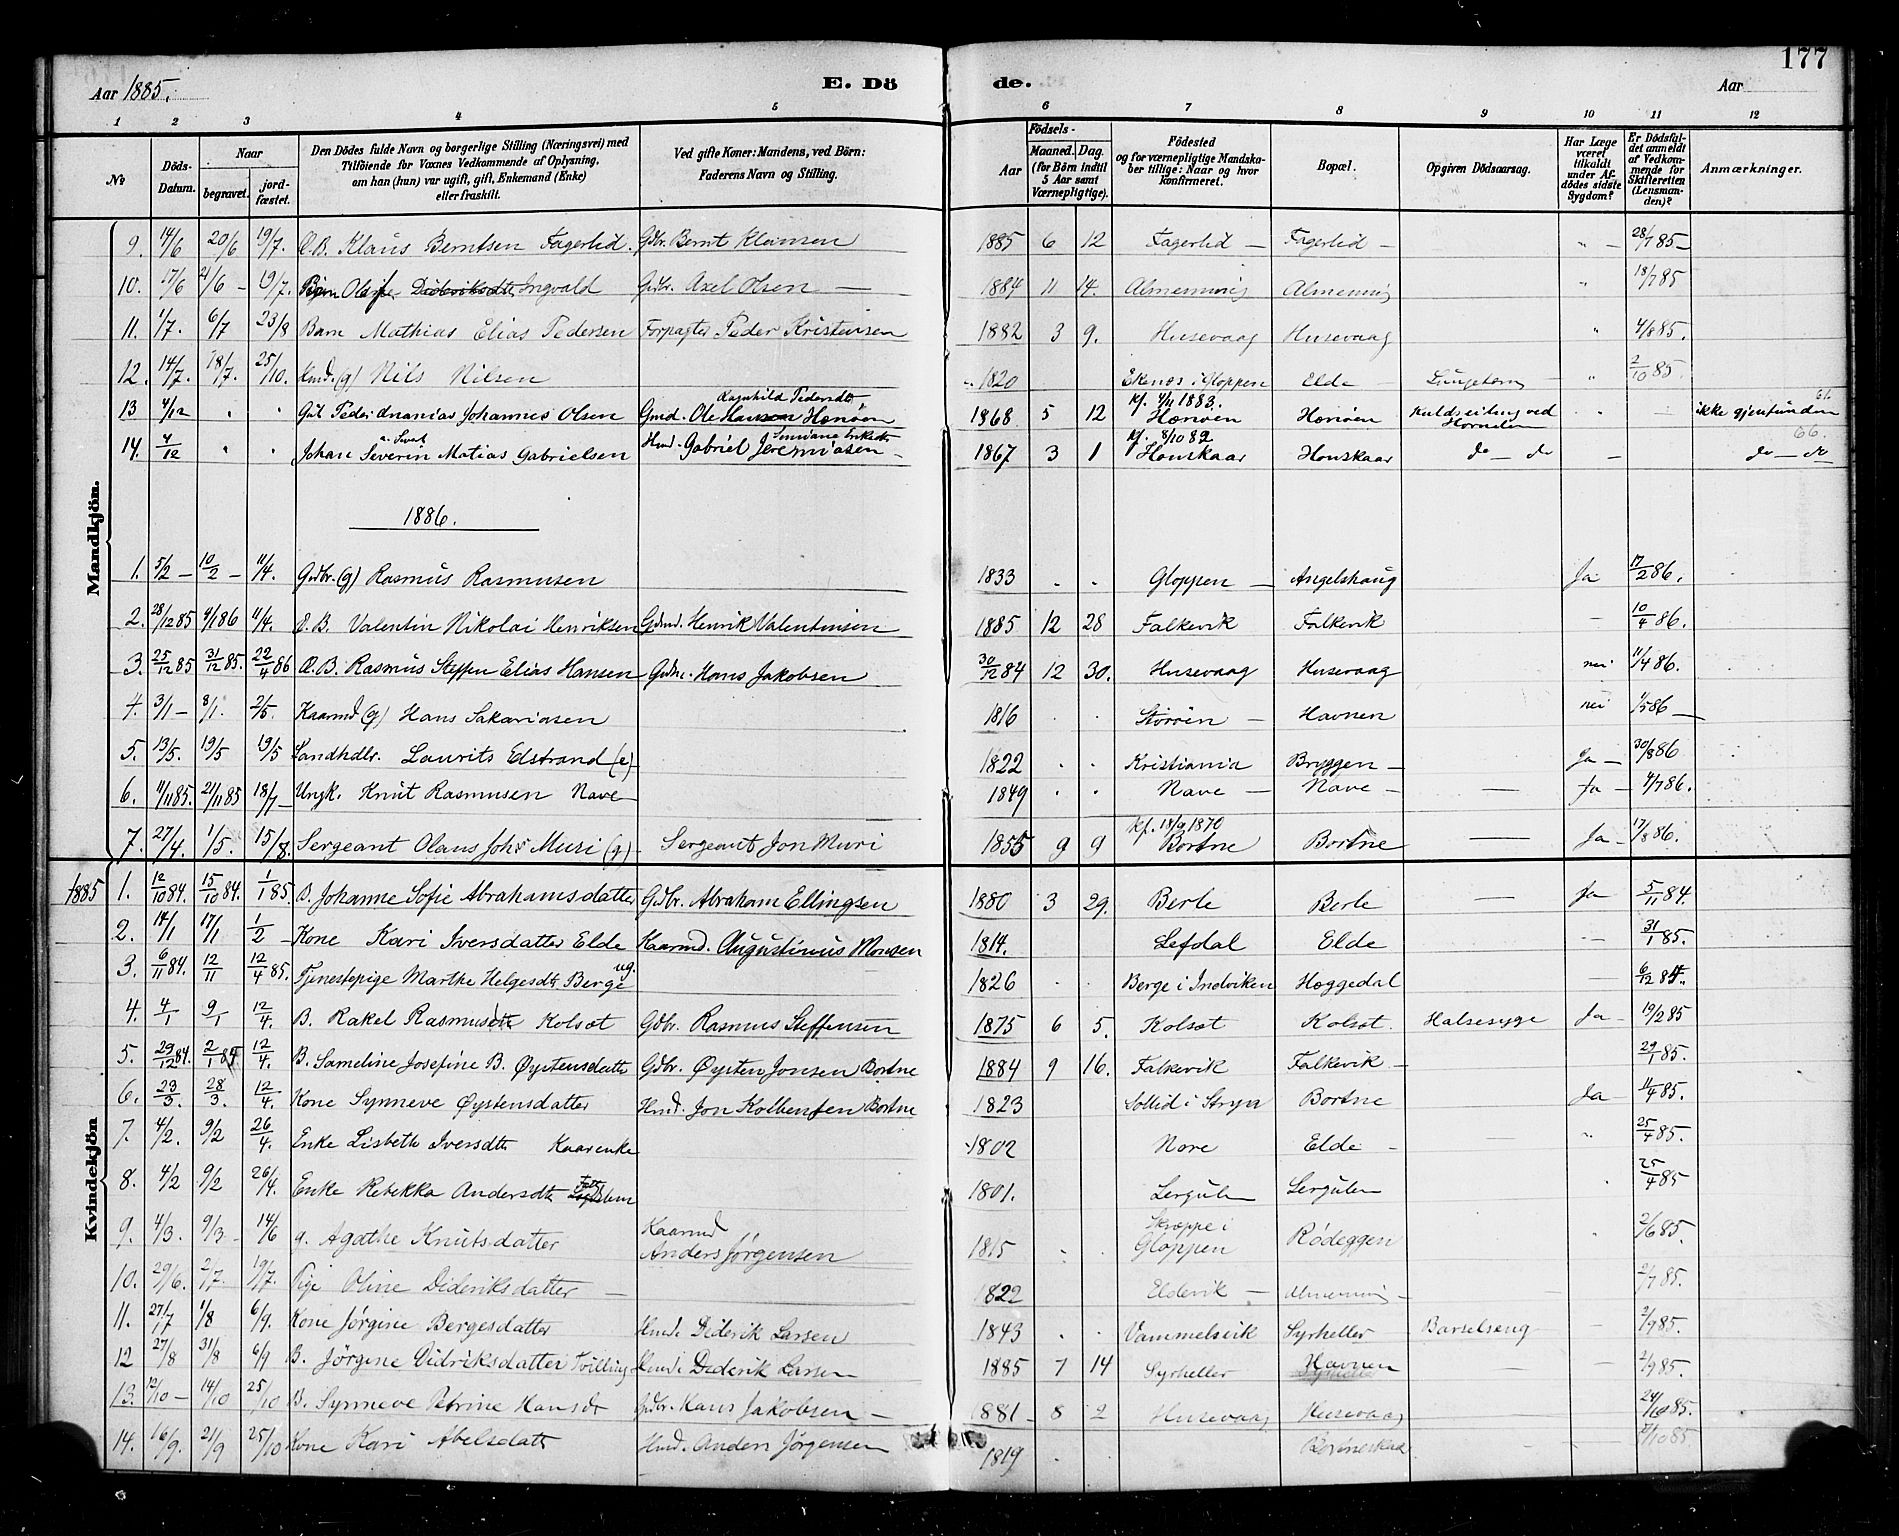 177
Aar 1885. E. Dö de. Aar
1 2 3 4 5 6 7 8 9 10 11 12
No Döds-Datum. Naar begravet. jordfæstet. Den Dödes fulde Navn og borgerlige Stilling (Næringsvei) med Tilföiende for Voxnes Vedkommende af Oplysning, om han (hun) var ugift, gift, Enkemand (Enke) eller fraskilt. Ved gifte Koner: Mandens, ved Börn: Faderens Navn og Stilling. Födsels- Aar Maaned. Dag. (for Börn indtil 5 Aar samt Værnepligtige). Födested og for værnepligtige Mandskaber tillige: Naar og hvor konfirmeret. Bopæl. Opgiven Dödsaarsag. Har Læge været tilkaldt under Afdödes sidste Sygdom? Er Dödsfaldet anmeldt af Vedkommende for Skifteretten (Lensmanden)? Anmærkninger.
Mandkjön.
9. 14/6 20/6 19/7. Æ.B. Klaus Berntsen Fagerlid Gdbr. Bernt Klausen 1885 6 12 Fagerlid — Fagerlid — " — 28/7 85 —
10. 17/6 21/6 — 19/7. Ingvald Gdbr. Axel Olsen — 1884 11 14. Almenning Almenning " 18/7 85
11. 1/7. 6/7 23/8 Barn Mathias Elias Pedersen Forpagter Peder Kristensen 1882 3 9. Husevaag Husevaag " 4/8 85.
12. 14/7. 18/7. 25/10. Hmd. (g) Nils Nilsen 1820 Ekenes i Gloppen Elde — " 2/10 85.
13 4/12 " " Gut Peder Ananias Johannes Olsen Gmd. Ole Hansen Henöen Ragnhild Pedersdt. 1868 5 12 Kf. 4/11 1883. Henöen Henöen Kuldseiling ved Hornelen " — ikke gjenfunden
14. 4/12 " " Johan Severin Matias Gabrielsen Hmd. Gabriel Jeremiasen — 1867 3 1 Kf. 8/10 82 Honskaar Honskaar do — do — do — do
1886.
1. 5/2 — 10/2 — 11/4. Gdbr. (g) Rasmus Rasmusen 1833 . . Gloppen — Angelshaug Ja 17/2 86.
2. 28/12 85 4/1 86 11/4. Æ.B. Valentin Nikolai Henriksen Gdmd. Henrik Valentinsen 1885 12 28 Falkevik Falkevik — 10/4 86.
3. 25/12 85 31/12 85. 22/4 86 Æ.B. Rasmus Steffen Elias Hansen Gdbr. Hans Jakobsen 30/12 84 12 30. Husevaag Husevaag nei 11/4 86.
4. 3/1 — 8/1. 2/5. Kaarmd (g) Hans Sakariasen 1816 . . Störöen — Havnen nei 1/5 86 —
5. 13/5. 19/5 19/5 Landhdlr. Laurits Edstrand (e) 1822 . . Kristiania Bryggen — Ja — 30/8 86
6. 11/11 85. 21/11 85 18/7 — Ungk. Knut Rasmusen Nave — 1849 . . Nave — Nave — — Ja — 4/7 86.
7. 27/4. 1/5. 15/8. Sergeant Olaus Johs Muri (g) — Sergeant Jon Muri 1855 9 9 Kf. 18/9 1870 Bortne Bortne — Ja — 17/8 86.
Kvindekjön
1885 1. 12/10 84. 15/10 84. 1/1 85. B. Johanne Sofie Abrahamsdatter Gdbr. Abraham Ellingsen 1880 3 29. Berle Berle — Ja 5/11 84.
2. 14/1 17/1 1/2 — Kone Kari Iversdatter Elde Kaarmd. Augustinus Monsen 1814. Lefdal Elde — — 31/1 85.
3. 6/11 84. 12/11 12/4 85. Tjenestepige Marthe Helgesdt. Berge ug. 1826 . . Berge i Indviken Heggedal — — 6/12 84.
4. 4/1 9/1 12/4. B. Rakel Rasmusdtr Kolset Gdbr. Rasmus Steffensen 1875 6 5. Kolset Kolset. Halsesyge Ja — 19/2 85
5. 29/12 84. 2/1 85 12/4. B. Sameline Josefine B. Øystensdatts Gdbr. Øysten Jonsen Bortne 1884 9 16. Falkevik Falkevik — 29/1 85.
6. 23/3. 28/3. 12/4. Kone Synneve Øystensdatter Hmd. Jon Kolbensen Bortne 1823 Sollid i Stryn Bortne Ja — 11/4 85.
7. 4/2. 9/2 26/4. Enke Lisbeth Iversdtr Kaarenke 1802 Nore Elde — — " 25/4 85.
8. 4/2 9/2 26/4. Enke Rebekka Andersdtr 1801. Lergulen Lergulen 25/4 85
9. 4/3. 9/3 — 14/6 g. Agathe Knutsdatter Kaarmd Anders Jørgensen 1815 . . Skreppe i Gloppen Rødeggen 2/6 85.
10. 29/6. 2/7. 19/7. Pige Oline Dideriksdatter — 1822 Eldevik — Almenning — 2/7 85.
11. 27/7 1/8 6/9. Kone Jørgine Bergesdatter Hmd. Diderik Larsen 1843 . . Vammelsvik Syrheller Barselseng — 2/9 85.
12 27/8 31/8 6/9 B. Jørgine Didriksdatter Tvilling Hmd. Diderik Larsen 1885 7 14 Syrheller Havnen — — 2/9 85.
13. 12/10 — 14/10 25/10 B. Synneve Petrine Hansdt Gdbr. Hans Jakobsen — 1881 — 8 2 Husevaag Husevaag 24/10 85.
14. 16/9. 21/9 25/10 Kone Kari Abelsdatt Hmd. Anders Jørgensen 1819 .